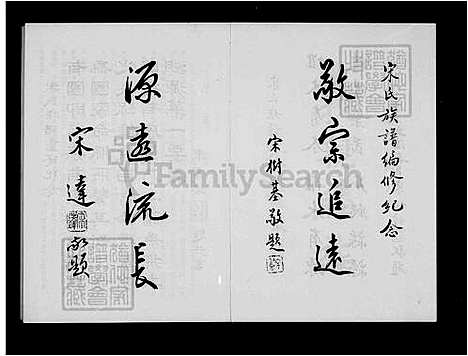 宋氏族譜編修紀念
敬宗追遠
宋樹基敬題
源遠流長
宋達
敬題
FamilySearch